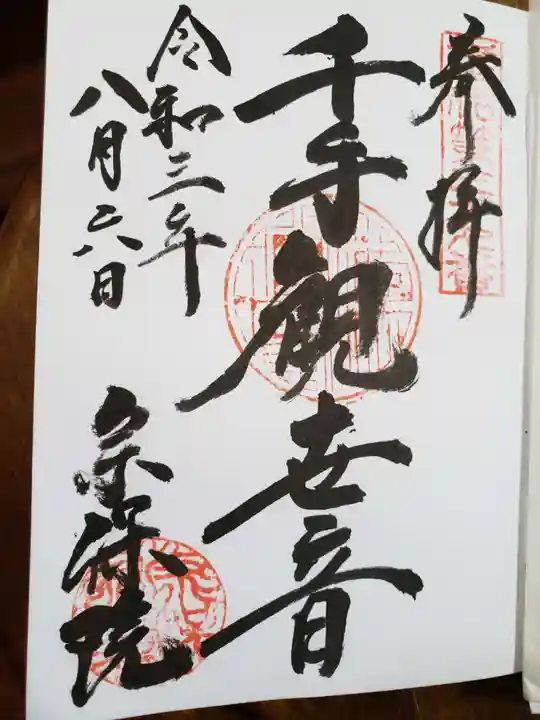 奉拝
千手観世音
令和三年
八月二八日
宗保院